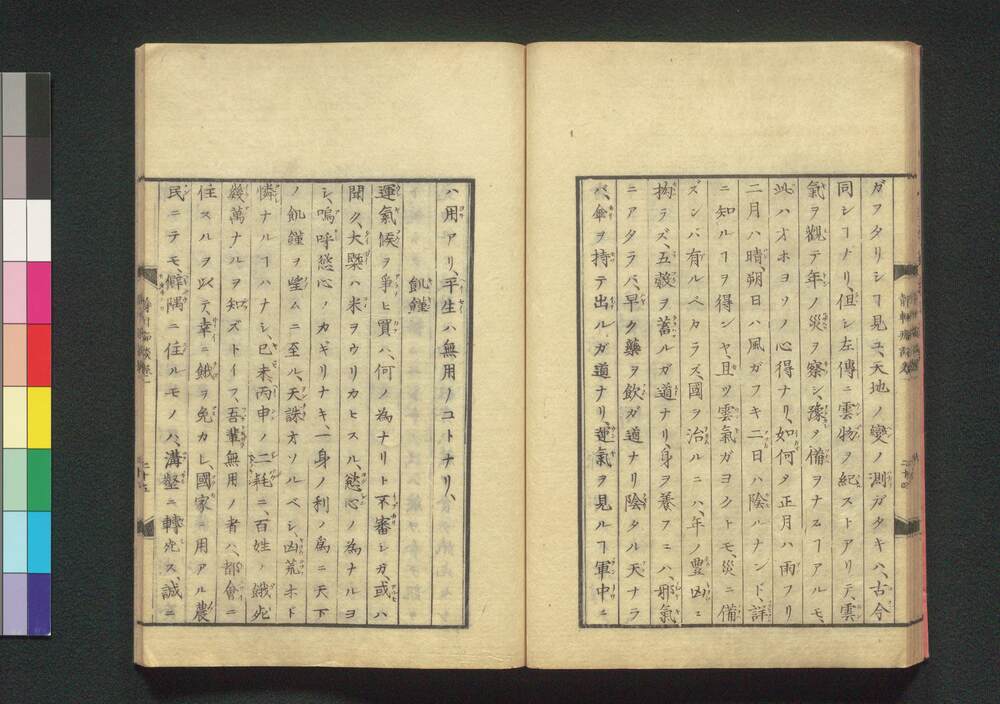 ガフタリシヿ見ユ、天地ノ變ノ測ガタキハ、古今
同シヿナリ、但シ左傳ニ雲物ヲ紀ストアリテ、雲
氣ヲ觀テ年ノ災ヲ察シ、豫ヲ備ヲナスヿアルモ、
此ハオホヨソノ心得ナリ、如何タ正月ハ雨フリ
二月ハ晴、朔日ハ風ガフキ二日ハ陰ルナンド、詳
ニ知ルヿヲ得ンヤ、且ツ雲氣ガヨクトモ、災ニ備
ズンバ有ルベカラズ、國ヲ治ルニハ、年ノ豊凶ニ
拘ラズ、五穀ヲ蓄ルガ道ナリ、身ヲ養フニハ、邪氣
ニアタラバ、早ク藥ヲ飲ガ道ナリ陰タル天ナラ
バ、傘ヲ持テ出ルガ道ナリ、運氣ヲ見ルヿ軍中ニ
ハ用アリ、平生ハ無用ノコトナリ、
飢饉
運氣候ヲ爭ヒ買ハ、何ノ為ナリト不審シガ、或ハ
聞ク、大槩ハ米ヲウリカヒスル、慾心ノ為ナルヨ
シ、嗚呼慾心ノカギリナキ、一身ノ利ノ為ニ天下
ノ飢饉ヲ望ムニ至ル、天誅オソルベシ、凶荒ホド
憐ナルヿハナシ、已未、丙申ノ二耗ニ、百姓ノ餓死
幾萬ナルヲ知ズトイフ、吾輩無用ノ者ハ、都會ニ
住スルヲ以テ、幸ニ餓ヲ免カレ、國家ニ用アル農
民ニテモ、僻隅ニ住ルモノハ、溝壑ニ轉死ス、誠ニ